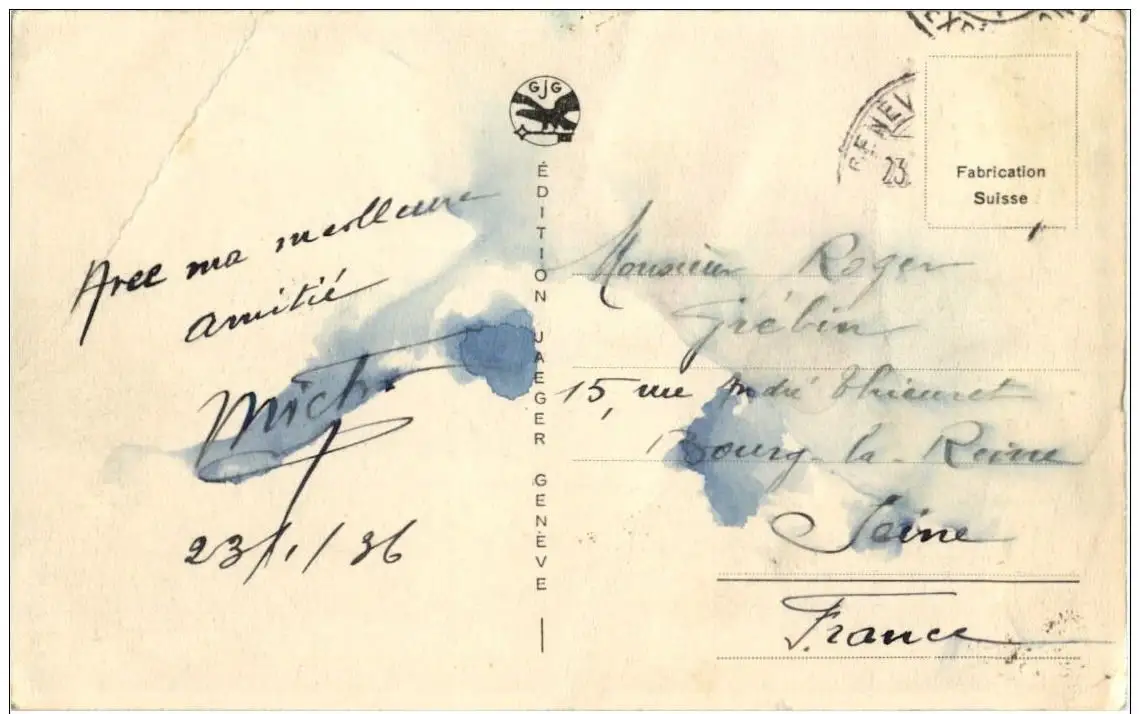 Avec ma meilleure
amitié
Mich
23/1/36
GJG
ÉDITION JAEGER GENÈVE
GENÈV
23.
Fabrication
Suisse
Monsieur Roger
Grébin
15, rue André Theuriet
Bourg-la-Reine
Seine
France